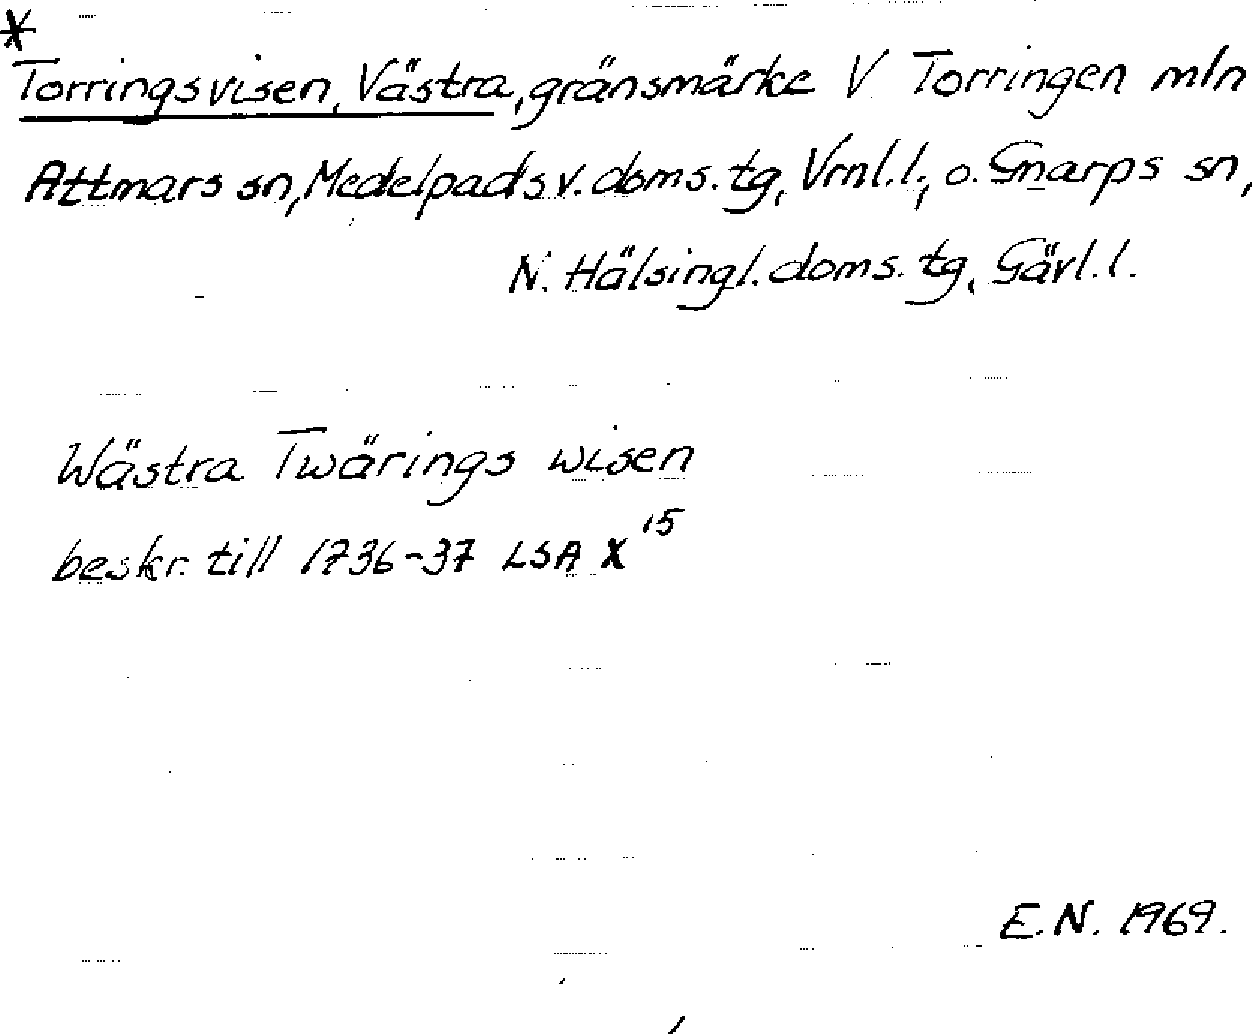 *
Torringsvisen, Västra, gränsmärke V Torringen mln
Attmars sn, Medelpads v. doms. tg, Vrnl. l., o. Gnarps sn,
N. Hälsingl. doms. tg, Gävl. l.
Wästra Twärings wisen
beskr. till 1736-37 LSA X 15
E. N. 1969.